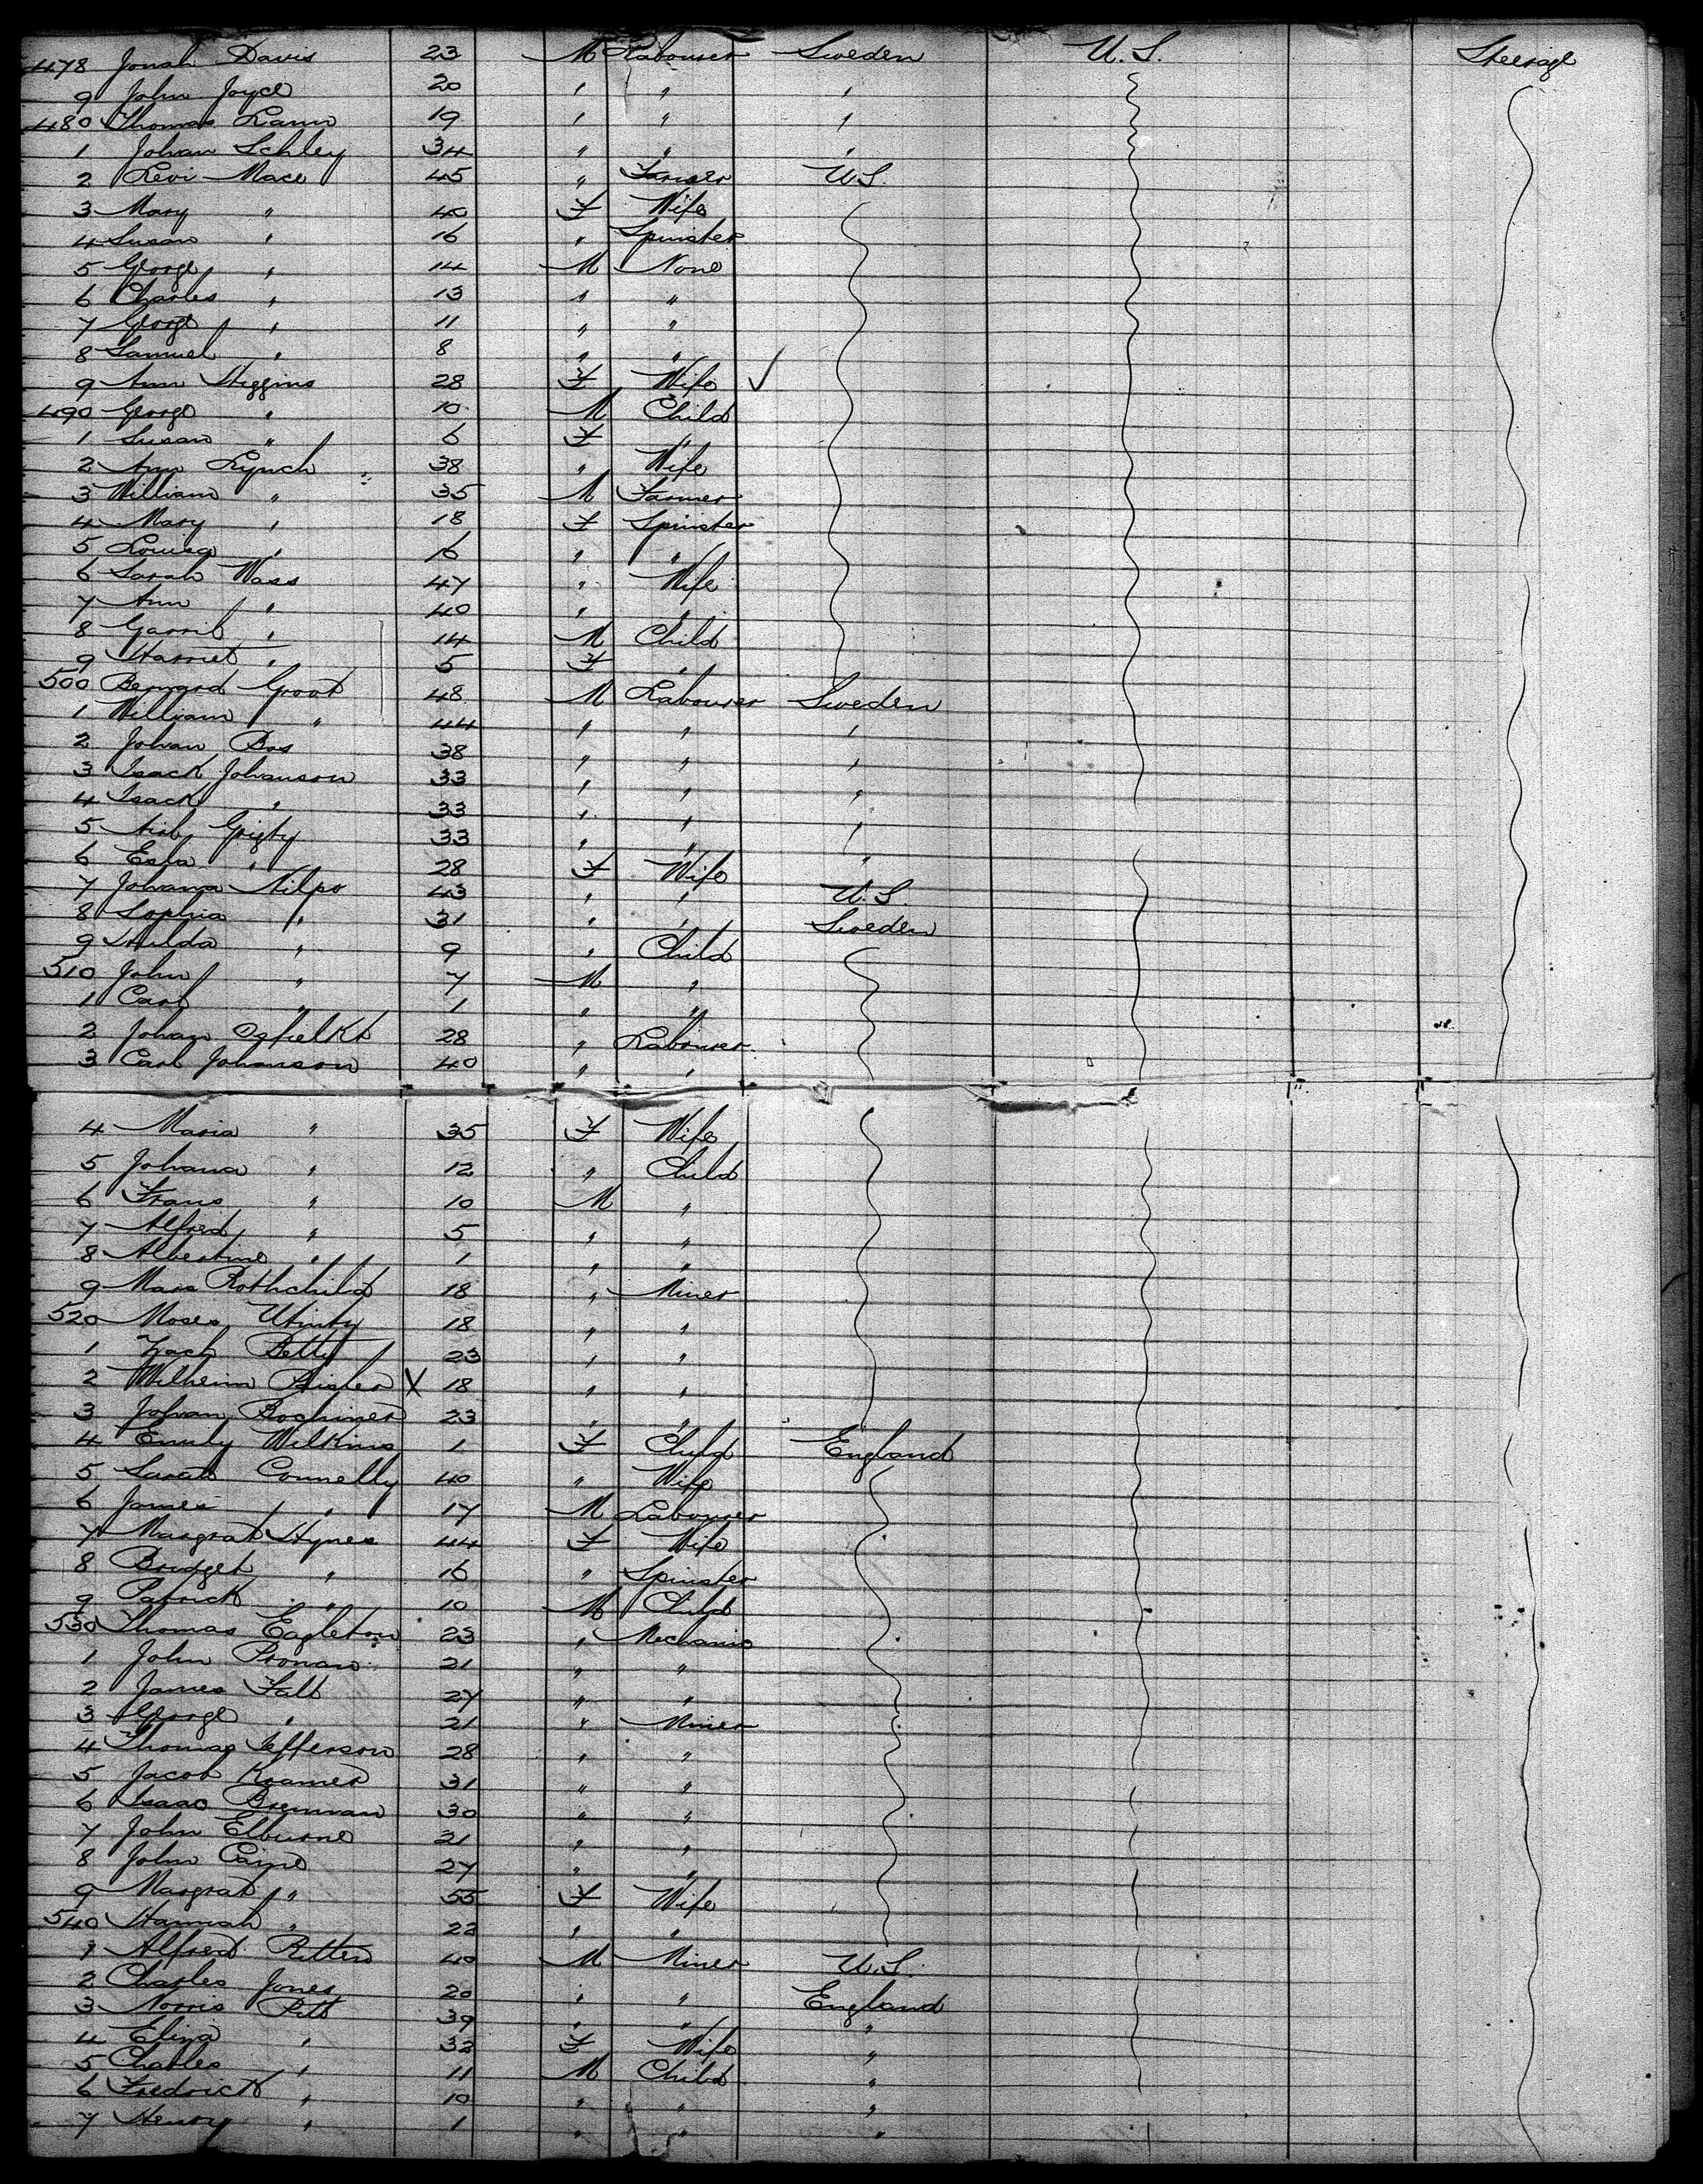 478 Jonah Davis 23 M Labourer Sweden U.S. Steerage
9 John Joyce 20 " " "
480 Thomas Lann 19 " " "
1 Johan Schley 34 " " "
2 Levi Mace 45 " Farmer U.S.
3 Mary " 40 F Wife
4 Susan " 16 " Spinster
5 George " 14 M None
6 Charles " 13 " "
7 George " 11 " "
8 Samuel " 8 " "
9 Ann Higgins 28 F Wife ✓
490 George " 10 M Child
1 Susan " 6 F "
2 Ann Lynch 38 " Wife
3 William " 35 M Farmer
4 Mary " 18 F Spinster
5 Louisa " 16 " "
6 Sarah Wass 47 " Wife
7 Ann " 40 " "
8 " 14 M Child
9 Harriet " 5 F "
500 Groot 48 M Labourer Sweden
1 William " 44 " " "
2 Johan Bos 38 " " "
3 Isack Johanson 33 " " "
4 Isack " 33 " " "
5 33 " " "
6 " 28 F Wife "
7 Johana Nilpo 43 " " U.S.
8 Sophia " 31 " " Sweden
9 Hulda " 9 " Child
510 John " 7 M "
1 Carl " 1 " "
2 Johan 28 " Labourer
3 Carl Johanson 40 " "
4 Maria " 35 F Wife
5 Johana " 12 " Child
6 Frans " 10 M "
7 Alfred " 5 " "
8 Albertine " 1 " "
9 Rothchild 18 " Miner
520 Moses 18 " "
1 Zach Betty 23 " "
2 Wilheim X 18 " "
3 Johan 23 " "
4 Emily Wilkins 1 F Child England
5 Sarah Connelly 40 " Wife
6 James " 17 M Labourer
7 Margrat Hynes 44 F Wife
8 Bridget " 16 " Spinster
9 Patrick " 10 M Child
530 Thomas Eagleton 23 " Mechanic
1 John 21 " "
2 James Fall 27 " "
3 George " 21 " Miner
4 Thomas Jefferson 28 " "
5 Jacob Kramer 31 " "
6 Isaac Brennan 30 " "
7 John Elbourne 21 " "
8 John Caine 27 " "
9 Margrat " 55 F Wife
540 Hannah " 22 " "
1 Alfred Ritter 40 M Miner U.S.
2 Charles Jones 20 " " England
3 Norris Pitt 39 " " "
4 Eliza " 32 F Wife "
5 Charles " 11 M Child "
6 Fredrick " 10 " " "
7 Henry " 1 " " "